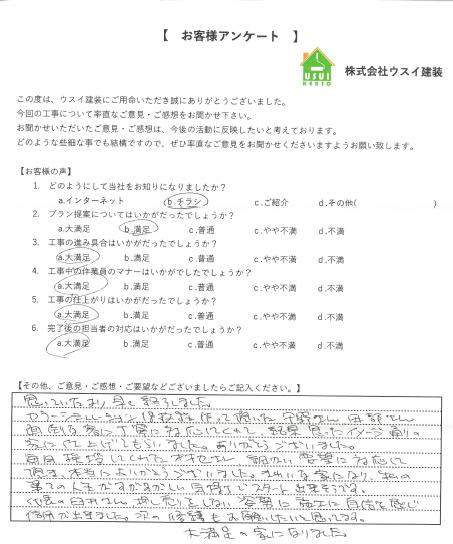 【 お客様アンケート 】
USUI
KENSO
株式会社ウスイ建装
この度は、ウスイ建装にご用命いただき誠にありがとうございました。
今回の工事について率直なご意見・ご感想をお聞かせ下さい。
お聞かせいただいたご意見・ご感想は、今後の活動に反映したいと考えております。
どのような些細な事でも結構ですので、ぜひ率直なご意見をお聞かせくださいますようお願い致します。
【お客様の声】
1. どのようにして当社をお知りになりましたか？
a.インターネット b.チラシ c.ご紹介 d.その他( )
2. プラン提案についてはいかがだったでしょうか？
a.大満足 b.満足 c.普通 c.やや不満 d.不満
3. 工事の進み具合はいかがだったでしょうか？
a.大満足 b.満足 c.普通 c.やや不満 d.不満
4. 工事中の作業員のマナーはいかがでしたでしょうか？
a.大満足 b.満足 c.普通 c.やや不満 d.不満
5. 工事の仕上がりはいかがだったでしょうか？
a.大満足 b.満足 c.普通 c.やや不満 d.不満
6. 完了後の担当者の対応はいかがだったでしょうか？
a.大満足 b.満足 c.普通 c.やや不満 d.不満
【その他、ご意見・ご感想・ご要望などございましたらご記入ください。】
思っていたより早く終りました。
カラーシュミレーション 作って頂いた
丁寧に対応してくれて イメージ通りの
家に仕上げてもらいました。ありがとうございました。
毎日 してくれた 親切 に対応して
頂き、本当にありがとうございました。きれいな家になり、私の
第二の人生がすがすがしい気持でスタート出来そうです。
代表の 姿勢に施工に自信を感じ
信頼が出来ました。次の もお願いしたいと思ってます。
大満足の家になりました。